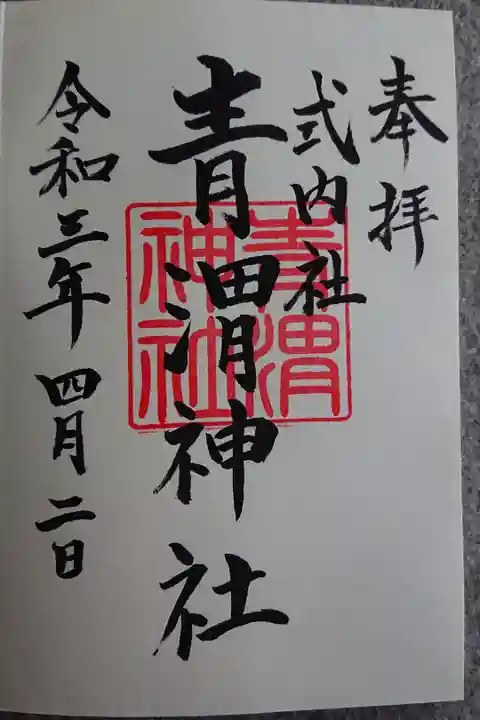 奉拝
式内社
青渭神社
青渭神社
令和三年四月二日